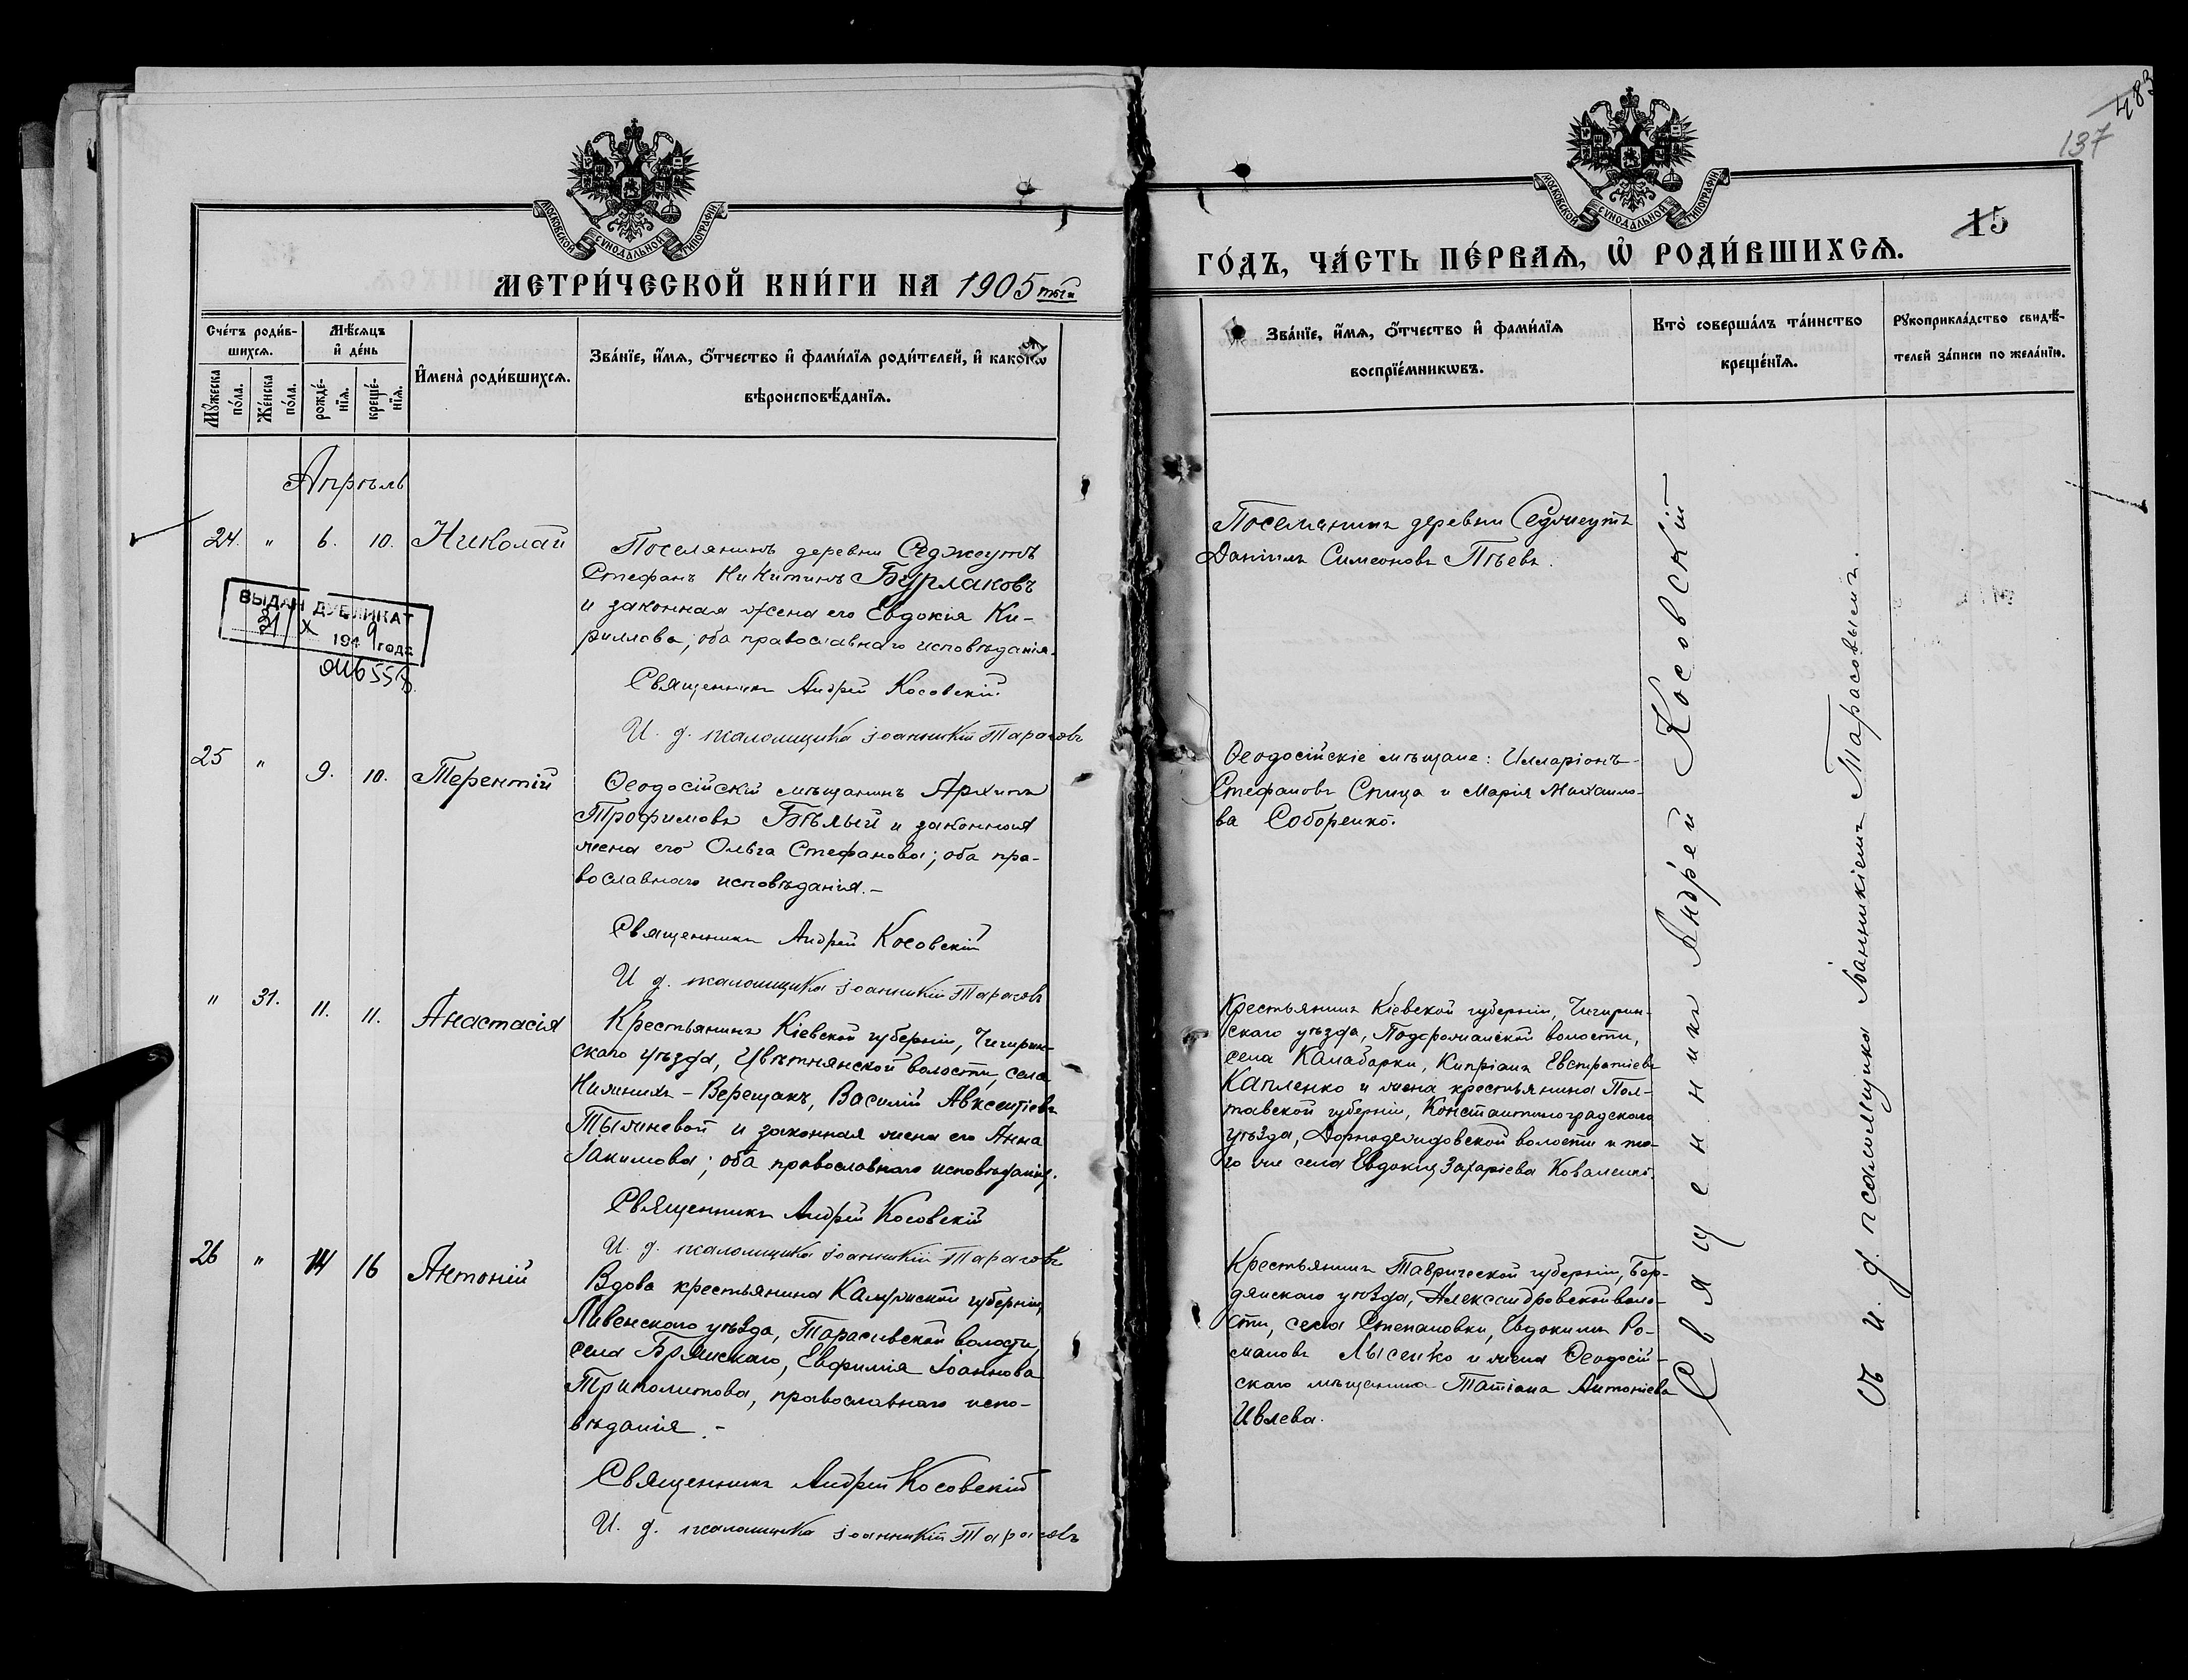 МОСКОВСКОЙ СѴНОДАЛЬНОЙ ТИПОГРАФІИ
МЕТРИ́ЧЕСКОЙ КНИ́ГИ НА 1905 тый
Сче́тъ роди́в-
шихсѧ.
Мѣ́сѧцъ
и҆ де́нь
Мꙋ́жеска
по́ла.
Же́нска
по́ла.
рожде́-
нїѧ.
креще́-
нїѧ.
И҆мена̀ роди́вшихсѧ.
Зва́нїе, и҆́мѧ, ѻ҆́тчество и҆ фами́лїѧ роди́телей, и҆ како́гѡ
вѣроисповѣ́данїѧ.
Апрѣль
24. " 6. 10. Николай
Поселянинъ деревни Седжеутъ
Стефанъ Никитинъ Бурлаковъ
и законная жена его Евдокія Ки-
риллова; оба православнаго исповѣданія.
ВЫДАН ДУБЛИКАТ
31/X 1949 года
Священникъ Андрей Косовскій
И. д. псаломщика Іоанникій Тарасовъ
25 " 9. 10. Терентій
Ѳеодосійскій мѣщанинъ Архипъ
Трофимовъ Бѣлый и законная
жена его Ольга Стефанова; оба пра-
вославнаго исповѣданія.–
Священникъ Андрей Косовскій
И д. псаломщика Іоанникій Тарасовъ
" 31. 11. 11. Анастасія
Крестьянинъ Кіевской губерніи, Чигирин-
скаго уѣзда, Цвѣтнянской волости, села
Нижнихъ-Верещакъ, Василій Авксентіевъ
Тылиневой и законная жена его Анна
Іакимова; оба православнаго исповѣданія.
Священникъ Андрей Косовскій
И. д. псаломщика Іоанникій Тарасовъ
26 " 14 16 Антоній
Вдова крестьянина губерніи,
Ливенскаго уѣзда, волости,
села Евфимія Іоаннова
Триполитова, православнаго испо-
вѣданія.–
Священникъ Андрей Косовскій
И. д. псаломщика Іоанникій Тарасовъ
483
137
15
МОСКОВСКОЙ СѴНОДАЛЬНОЙ ТИПОГРАФІИ
ГО́ДЪ, ЧА́СТЬ ПЕ́РВАѦ, Ѡ҆ РОДИ́ВШИХСѦ.
Зва́нїе, и҆́мѧ, ѻ҆́тчество и҆ фами́лїѧ
воспрїе́мникѡвъ.
Кто̀ соверша́лъ та́инство
креще́нїѧ.
Рꙋкоприкла́дство свидѣ́-
телей за́писи по жела́нїю.
Поселянинъ деревни Седжеутъ
Даніилъ Симеоновъ Пѣевъ.
Ѳеодосійскіе мѣщане: Илларіонъ
Стефановъ Спица и Марія Михаило-
ва Соборенко.
Крестьянинъ Кіевской губерніи, Чигирин-
скаго уѣзда, волости,
села Калаборки, Кипріанъ Евстратіевъ
Капленко и жена крестьянина Пол-
тавской губерніи, Константиноградскаго
уѣзда, волости и то-
го же села Евдокія Захаріева Коваленко.
Крестьянинъ Таврической губерніи, Бер-
дянскаго уѣзда, Александровской воло-
сти, села Степановки, Евдокимъ Ро-
мановъ Лысенко и жена Ѳеодосій-
скаго мѣщанина Татіана Антоніева
Ивлева.
Священникъ Андрей Косовскій
съ и. д. псаломщика Іоанникіемъ Тарасовымъ.